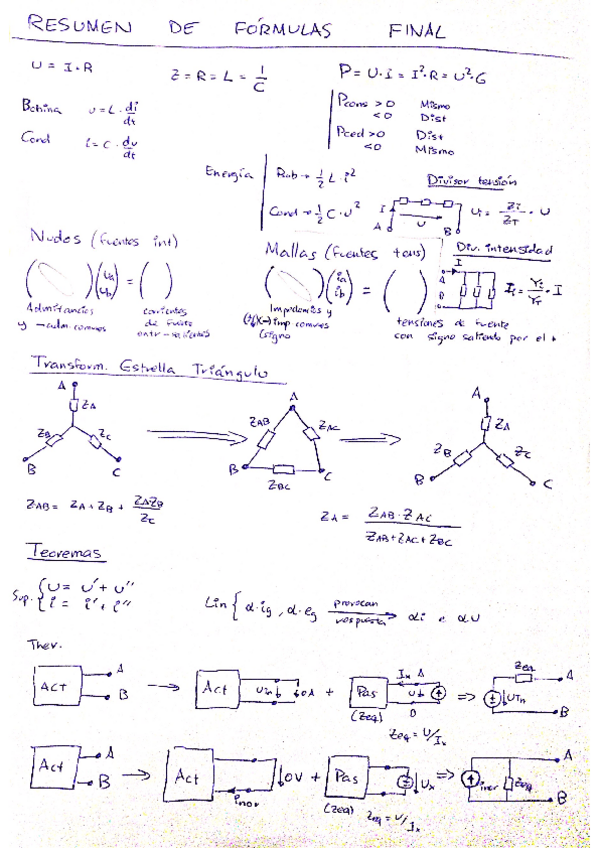 RESUMEN DE FÓRMULAS FINAL
U = I · R
Z = R = L = 1/C
P = U · I = I² · R = U² · G
Bobina u = L · di/dt
Cond i = C · du/dt
Pcons > 0 Mismo
< 0 Dist
Pced > 0 Dist
< 0 Mismo
Energía
Bob → 1/2 L · i²
Cond → 1/2 C · u²
Divisor tensión
I
A U B
Ui = Zi/ZT · U
Nudos (fuentes int)
(ua ub) =
Admitancias
y - adm comunes
corrientes
de fuente
entr - salientes
Mallas (fuentes tens)
(ia ib) =
Impedancias y
(+)(-) imp comunes
(signo
tensiones de fuente
con signo saliendo por el +
Div. intensidad
I
A
B
Ii = Yi/YT · I
Transform. Estrella Triángulo
A ZA ZB ZC B C
A ZAB ZAC B ZBC C
A ZA ZB ZC B C
ZAB = ZA + ZB + ZAZB/ZC
ZA = ZAB · ZAC / ZAB + ZAC + ZBC
Teoremas
Sup. { U = U' + U''
i = i' + i''
Lin { α·ig, α·eg provocan respuesta αi e αU
Thev.
Act A B → Act 0A + Pas (Zeq) Ix A ⇒ Zeq A UTh B
Zeq = U/Ix
Act A B → Act inor 0V + Pas (Zeq) Ux ⇒ inor Zeq A B
Zeq = U/Ix